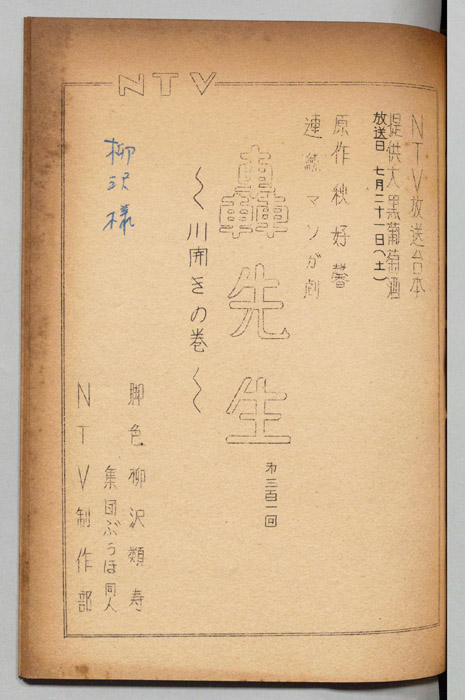 NTV
NTV放送台本
提供大黒葡萄酒
放送日 七月二十一日(土)
原作 秋好馨
連続マンガ劇
轟先生
第三百一回
〜川開きの巻〜
柳沢様
脚色 柳沢類寿
集団ぶうほ同人
NTV制作部